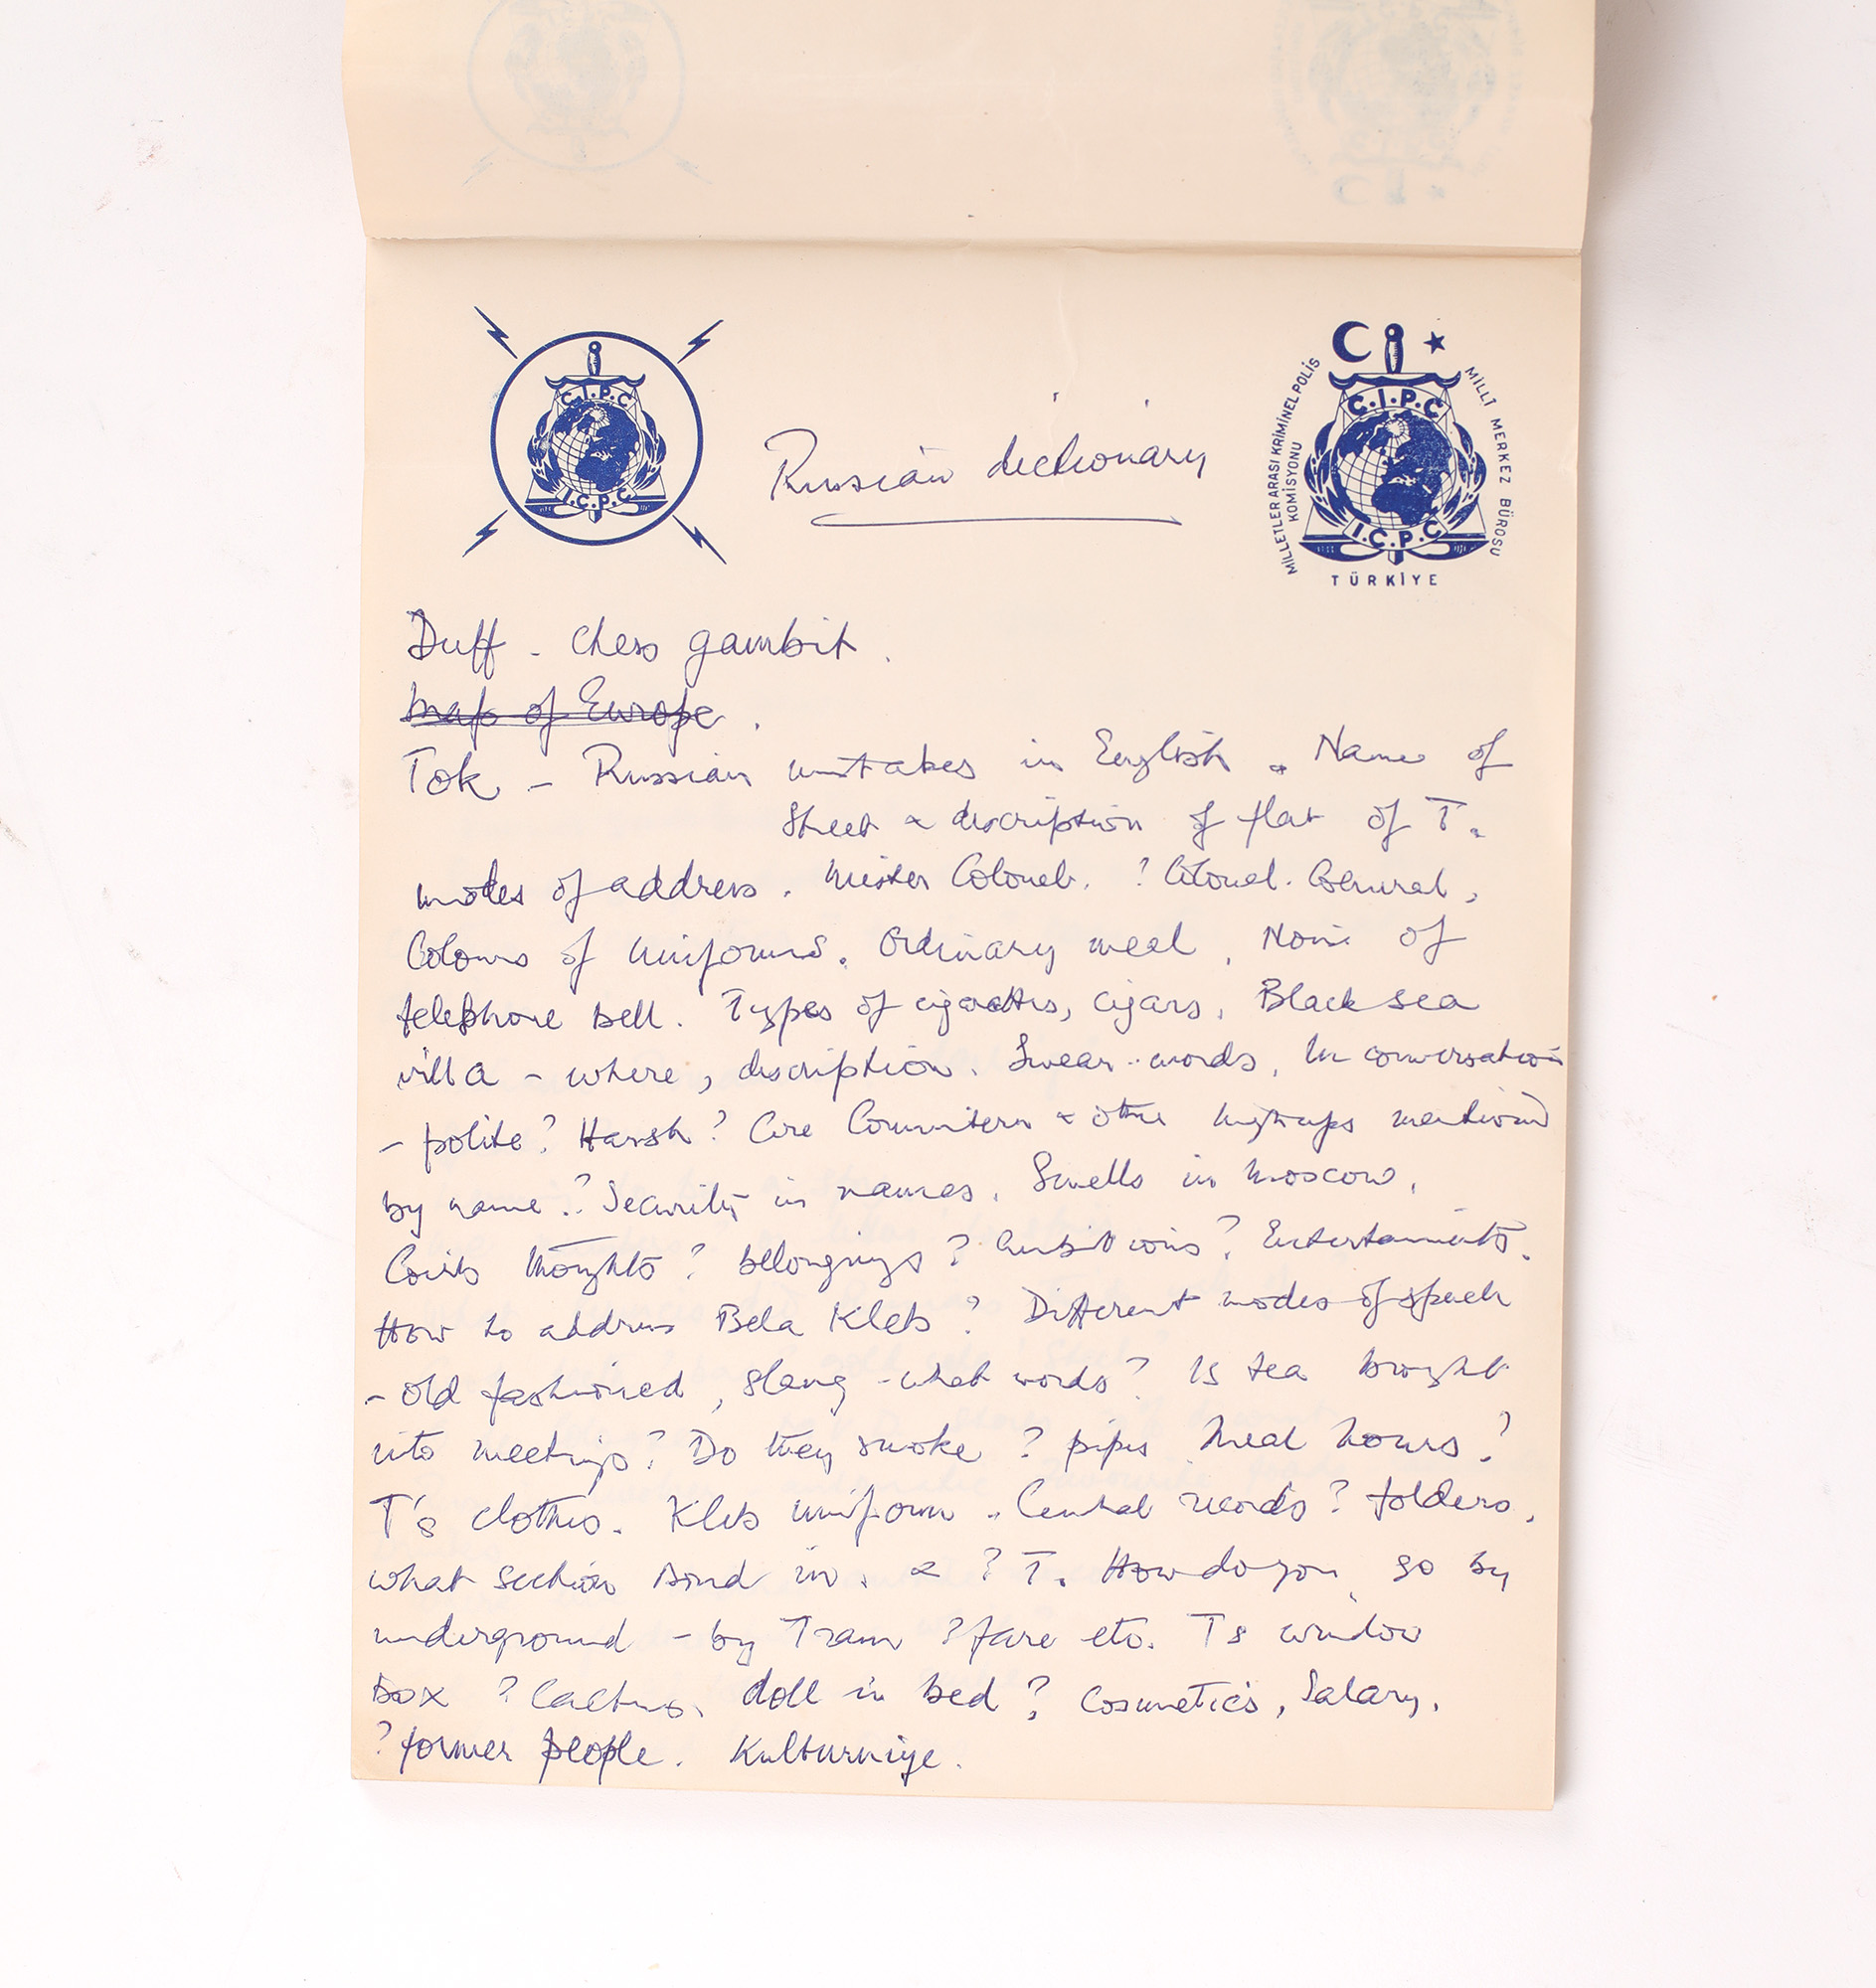 C.I.P.C
I.C.P.C
Russian dictionary
C.I.P.C
I.C.P.C
MİLLETLER ARASI KRİMİNEL POLİS
KOMİSYONU
MİLLİ MERKEZ BÜROSU
TÜRKİYE
Duff - Chess gambit.
Map of Europe.
Tok - Russian mistakes in English. Name of
Street & description of flat of T.
modes of address. Mister Colonel. ? Colonel. General,
Colours of uniforms. Ordinary meal, Noise of
telephone bell. Types of cigarettes, cigars, Black sea
villa - where, description. Swear-words, In conversation
- polite? Harsh? Are Comintern & other higher-ups mentioned
by name? Security in names. Smells in Moscow,
Girls thoughts? belongings? Ambitions? Entertainments.
How to address Bela Kleb? Different modes of speech
- old fashioned, slang - what words? Is tea brought
into meetings? Do they smoke? pipes Meal hours?
T's clothes. Klebs uniform. Central records? folders,
what section Bond in. & ? T. How do you go by
underground - by Tram ? fare etc. Ts window
box ? Cactus, doll in bed? Cosmetics, Salary.
? former people. Kulturniye.